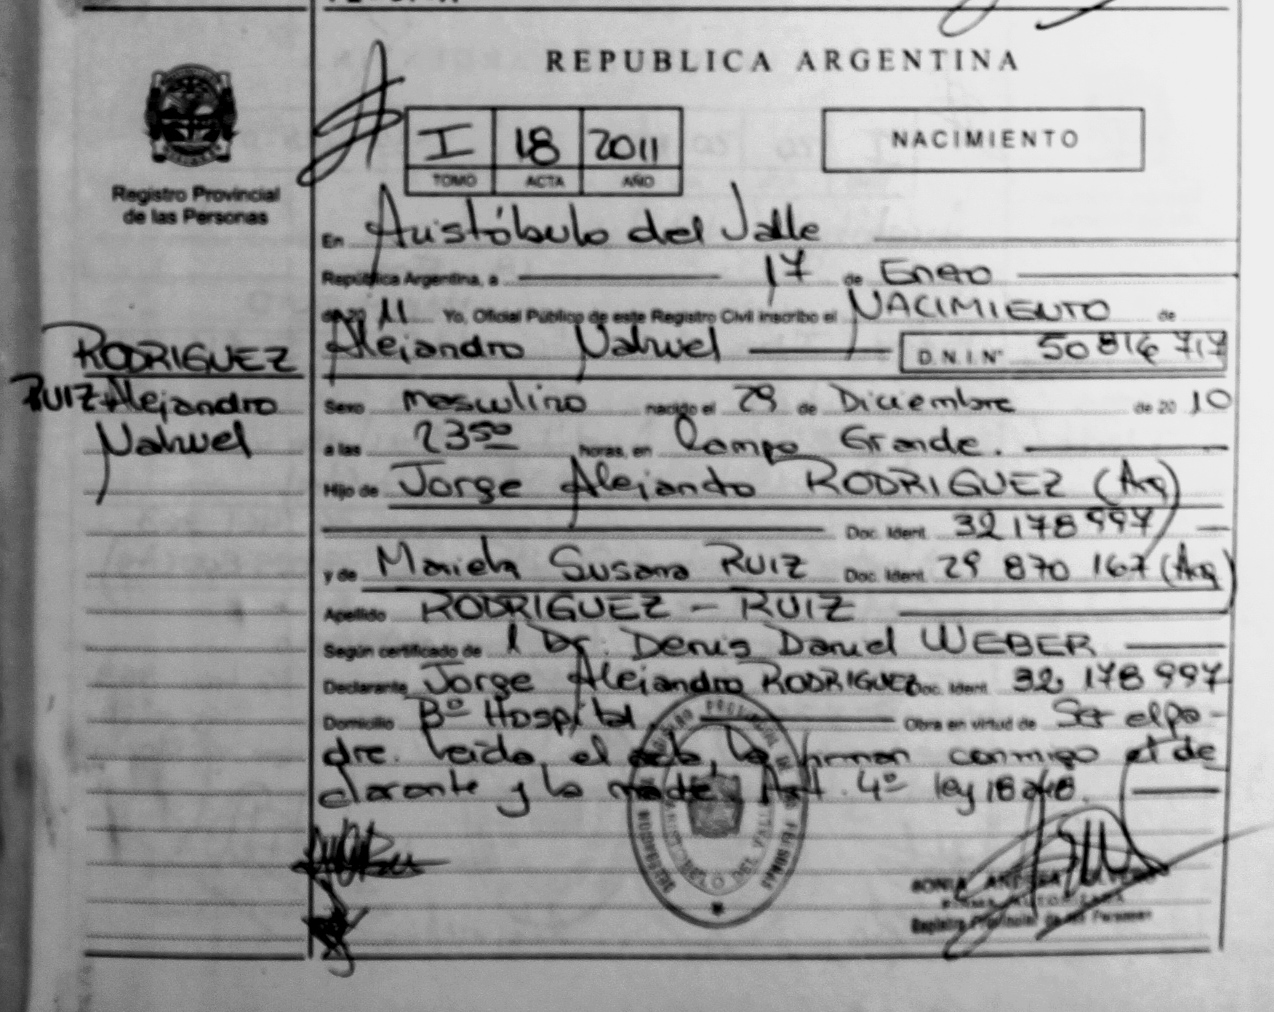 REPUBLICA ARGENTINA
I 18 2011
TOMO ACTA AÑO
NACIMIENTO
Registro Provincial
de las Personas
En Aristóbulo del Valle
República Argentina, a 17 de Enero
de 20 11 Yo, Oficial Público de este Registro Civil inscribo el NACIMIENTO de
Alejandro Nahuel D.N.I.Nº 50 816 717
RODRIGUEZ
RUIZ Alejandro
Nahuel
Sexo masculino nacido el 29 de Diciembre de 20 10
a las 23 50 horas, en Campo Grande.
Hijo de Jorge Alejandro RODRIGUEZ (Arg)
Doc. Ident. 32 178 997
y de Mariela Susana RUIZ Doc. Ident. 29 870 167 (Arg)
Apellido RODRIGUEZ - RUIZ
Según certificado de l Dr. Denis Daniel WEBER
Declarante Jorge Alejandro RODRIGUEZ Doc. Ident. 32 178 997
Domicilio Bº Hospital Obra en virtud de Ser el pa-
dre. Leida el acta, la firman conmigo el de
clarante y la madre, Art. 4º ley 18248.
REGISTRO PROVINCIAL DE LAS PERSONAS
ARISTOBULO DEL VALLE
SONIA
FIRMA AUTORIZADA
Registro Provincial de las Personas